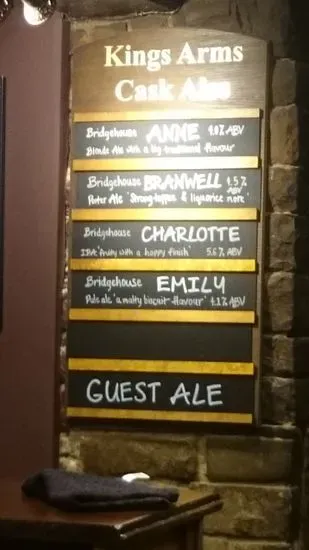 Kings Arms
Cask Ales
Bridgehouse ANNE 4.0% ABV
Blonde Ale with a big traditional flavour
Bridgehouse BRANWELL 4.5%
ABV
Porter Ale 'Strong toffee & liquorice note'
Bridgehouse CHARLOTTE
IPA 'fruity with a hoppy finish' 5.6% ABV
Bridgehouse EMILY
Pale ale 'a malty biscuit flavour' 4.2% ABV
GUEST ALE